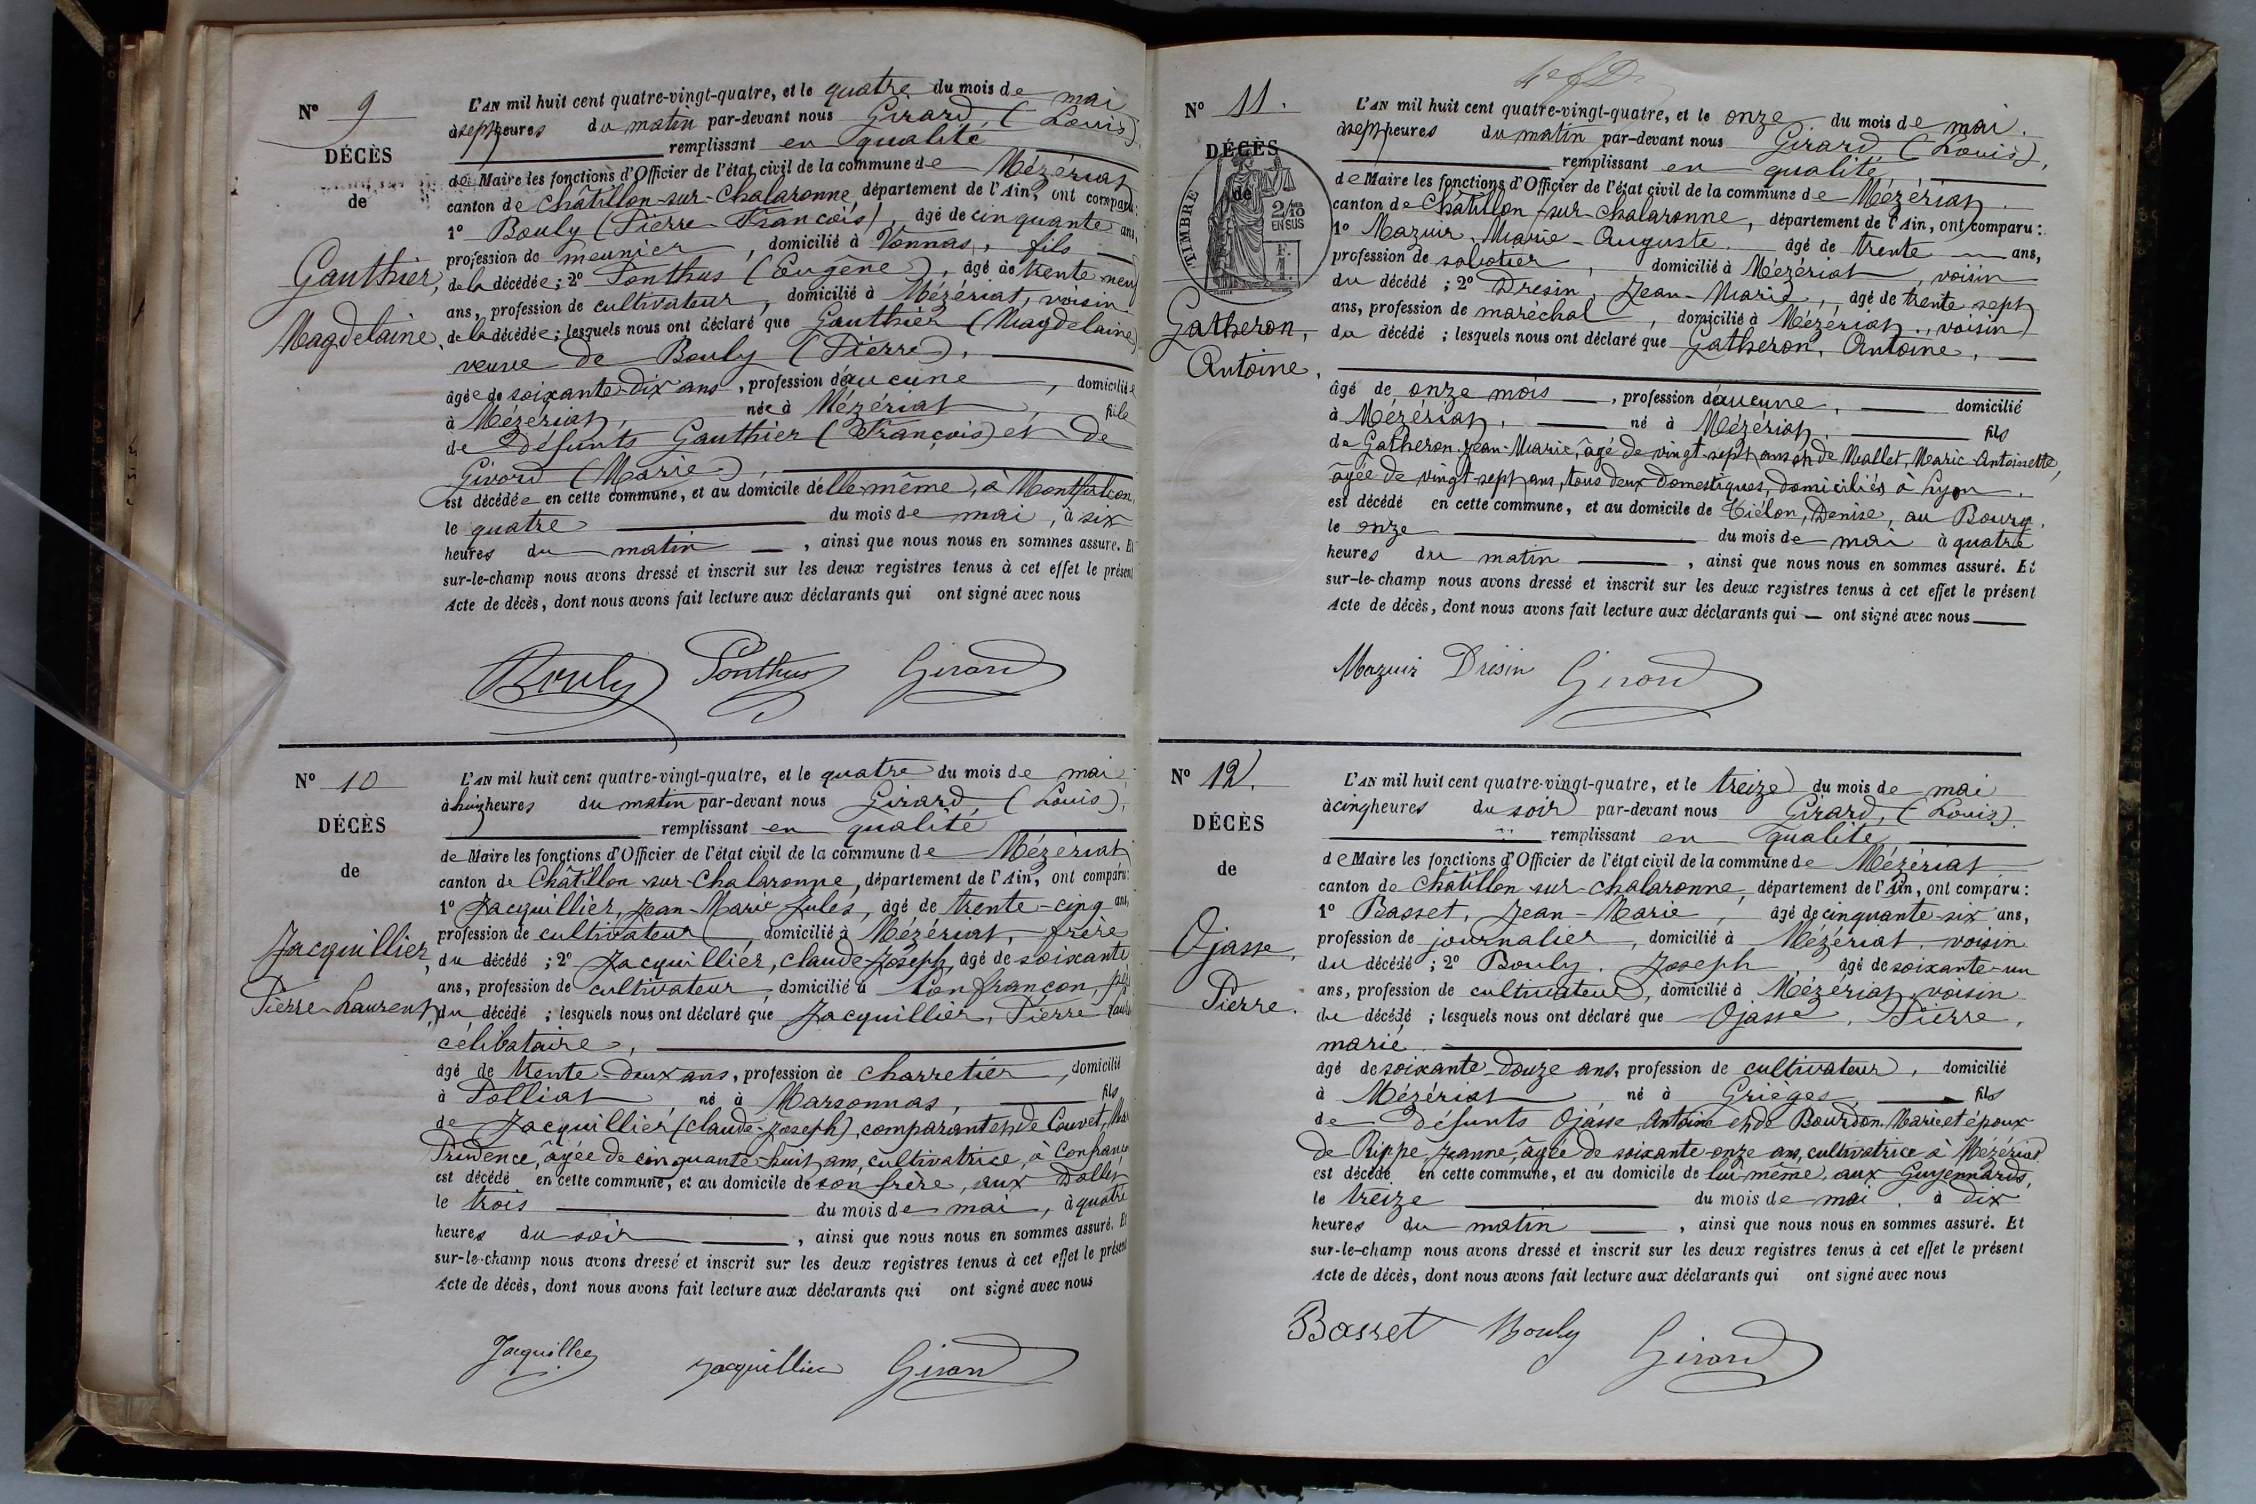 N° 9
DÉCÈS
de
Gauthier,
Magdelaine,
L'AN mil huit cent quatre-vingt-quatre, et le quatre du mois de mai
à sept heures du matin par-devant nous Girard, (Louis),
remplissant en qualité
de Maire les fonctions d'Officier de l'état civil de la commune de Mézériat
canton de Châtillon-sur-Chalaronne, département de l'Ain, ont comparu:
1° Bouly (Pierre-François), âgé de cinquante ans,
profession de meunier, domicilié à Vonnas, fils
de la décédée; 2° Ponthus (Eugène), âgé de trente neuf
ans, profession de cultivateur, domicilié à Mézériat, voisin
de la décédée; lesquels nous ont déclaré que Gauthier (Magdelaine)
veuve de Bouly (Pierre),
âgée de soixante-dix ans, profession d'aucune, domiciliée
à Mézériat, née à Mézériat, fille
de défunts Gauthier (François) et de
Givord (Marie),
est décédée en cette commune, et au domicile d'elle-même, à Montfalcon,
le quatre du mois de mai, à six
heures du matin, ainsi que nous nous en sommes assuré. Et
sur-le-champ nous avons dressé et inscrit sur les deux registres tenus à cet effet le présent
Acte de décès, dont nous avons fait lecture aux déclarants qui ont signé avec nous
Bouly Ponthus Girard
N° 10
DÉCÈS
de
Jacquillier,
Pierre-Laurent,
L'AN mil huit cent quatre-vingt-quatre, et le quatre du mois de mai
à huit heures du matin par-devant nous Girard, (Louis),
remplissant en qualité
de Maire les fonctions d'Officier de l'état civil de la commune de Mézériat
canton de Châtillon-sur-Chalaronne, département de l'Ain, ont comparu:
1° Jacquillier, Jean-Marie Jules, âgé de trente-cinq ans,
profession de cultivateur, domicilié à Mézériat, frère
du décédé; 2° Jacquillier, Claude-Joseph, âgé de soixante
ans, profession de cultivateur, domicilié à Confrançon, père
du décédé; lesquels nous ont déclaré que Jacquillier, Pierre
célibataire,
âgé de trente-deux ans, profession de charretier, domicilié
à Polliat, né à Marsonnas, fils
de Jacquillier (Claude-Joseph), comparant et de Couvet,
Prudence, âgée de cinquante-huit ans, cultivatrice, à Confrançon
est décédé en cette commune, et au domicile de son frère, aux
le trois du mois de mai, à quatre
heures du soir, ainsi que nous nous en sommes assuré. Et
sur-le-champ nous avons dressé et inscrit sur les deux registres tenus à cet effet le présent
Acte de décès, dont nous avons fait lecture aux déclarants qui ont signé avec nous
Jacquillier Jacquillier Girard
N° 11.
DÉCÈS
de
TIMBRE
2/10
EN SUS
Gatheron,
Antoine.
L'AN mil huit cent quatre-vingt-quatre, et le onze du mois de mai.
à sept heures du matin par-devant nous Girard (Louis),
remplissant en qualité
de Maire les fonctions d'Officier de l'état civil de la commune de Mézériat
canton de Châtillon-sur-Chalaronne, département de l'Ain, ont comparu:
1° Mazuir, Marie-Auguste. âgé de trente ans,
profession de sabotier, domicilié à Mézériat, voisin
du décédé; 2° Dresin, Jean-Marie, âgé de trente sept
ans, profession de maréchal, domicilié à Mézériat, voisin
du décédé; lesquels nous ont déclaré que Gatheron, Antoine,
âgé de onze mois, profession d'aucune, domicilié
à Mézériat, né à Mézériat, fils
de Gatheron, Jean-Marie, âgé de vingt-sept ans et de Mallet, Marie-Antoinette,
âgée de vingt-sept ans, tous deux domestiques, domiciliés à Lyon.
est décédé en cette commune, et au domicile de Denise, au Bourg,
le onze du mois de mai à quatre
heures du matin, ainsi que nous nous en sommes assuré. Et
sur-le-champ nous avons dressé et inscrit sur les deux registres tenus à cet effet le présent
Acte de décès, dont nous avons fait lecture aux déclarants qui ont signé avec nous
Mazuir Dresin Girard
N° 12.
DÉCÈS
de
Ojasse,
Pierre.
L'AN mil huit cent quatre-vingt-quatre, et le treize du mois de mai
à cinq heures du soir par-devant nous Girard, (Louis).
remplissant en qualité
de Maire les fonctions d'Officier de l'état civil de la commune de Mézériat
canton de Châtillon-sur-Chalaronne, département de l'Ain, ont comparu:
1° Basset, Jean-Marie, âgé de cinquante-six ans,
profession de journalier, domicilié à Mézériat, voisin
du décédé; 2° Bouly, Joseph, âgé de soixante-un
ans, profession de cultivateur, domicilié à Mézériat, voisin
du décédé; lesquels nous ont déclaré que Ojasse, Pierre,
marié
âgé de soixante-douze ans, profession de cultivateur, domicilié
à Mézériat, né à Grièges, fils
de défunts Ojasse, Antoine et de Bourdon Marie et époux
de Rippe, Jeanne, âgée de soixante-onze ans, cultivatrice à Mézériat
est décédé en cette commune, et au domicile de lui-même, aux Guyennards,
le treize du mois de mai à dix
heures du matin, ainsi que nous nous en sommes assuré. Et
sur-le-champ nous avons dressé et inscrit sur les deux registres tenus à cet effet le présent
Acte de décès, dont nous avons fait lecture aux déclarants qui ont signé avec nous
Basset Bouly Girard